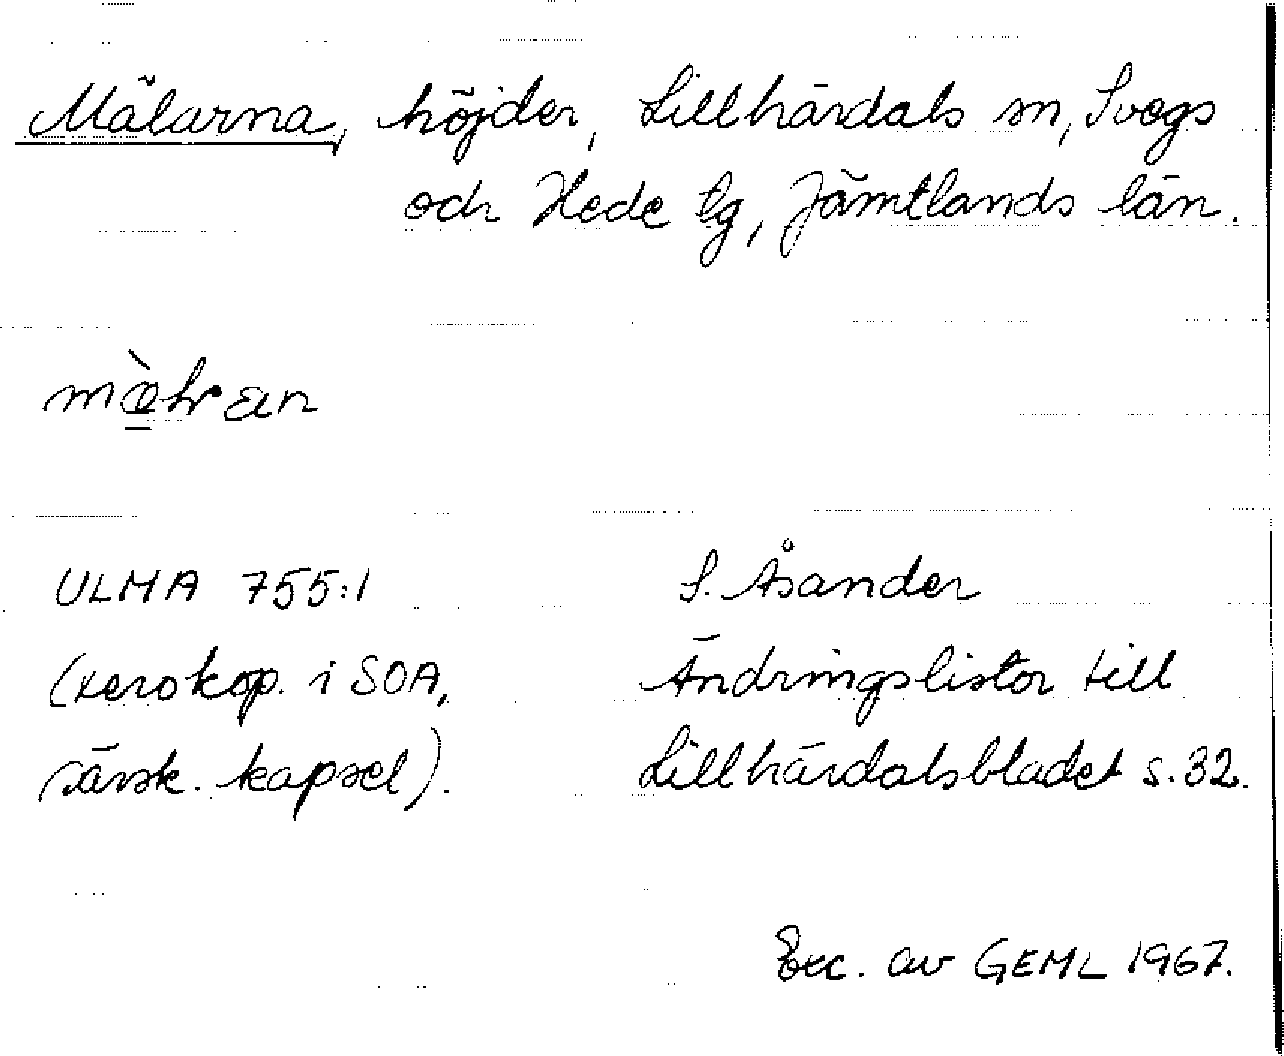 Mälarna, höjder, Lillhärdals sn, Svegs
och Hede tg, Jämtlands län.
ULMA 755:1
(xerokop. i SOA,
särsk. kapsel).
S. Åsander
Ändringslistor till
Lillhärdalsbladet s. 32.
Exc. av GEML 1967.